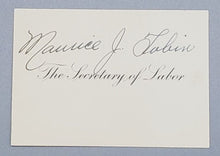 Maurice J. Tobin
The Secretary of Labor